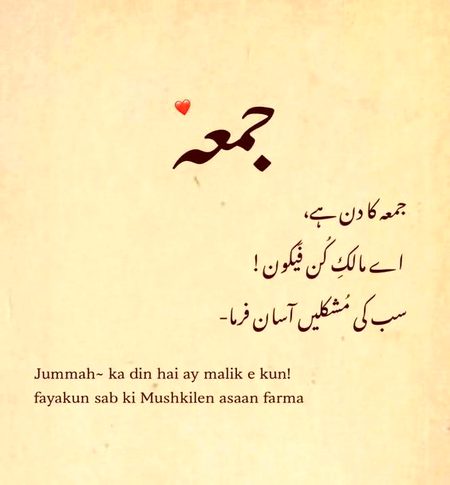 جمعہ
جمعہ کا دن ہے،
اے مالکِ کُن فَیکون !
سب کی مُشکلیں آسان فرما-
Jummah~ ka din hai ay malik e kun!
fayakun sab ki Mushkilen asaan farma